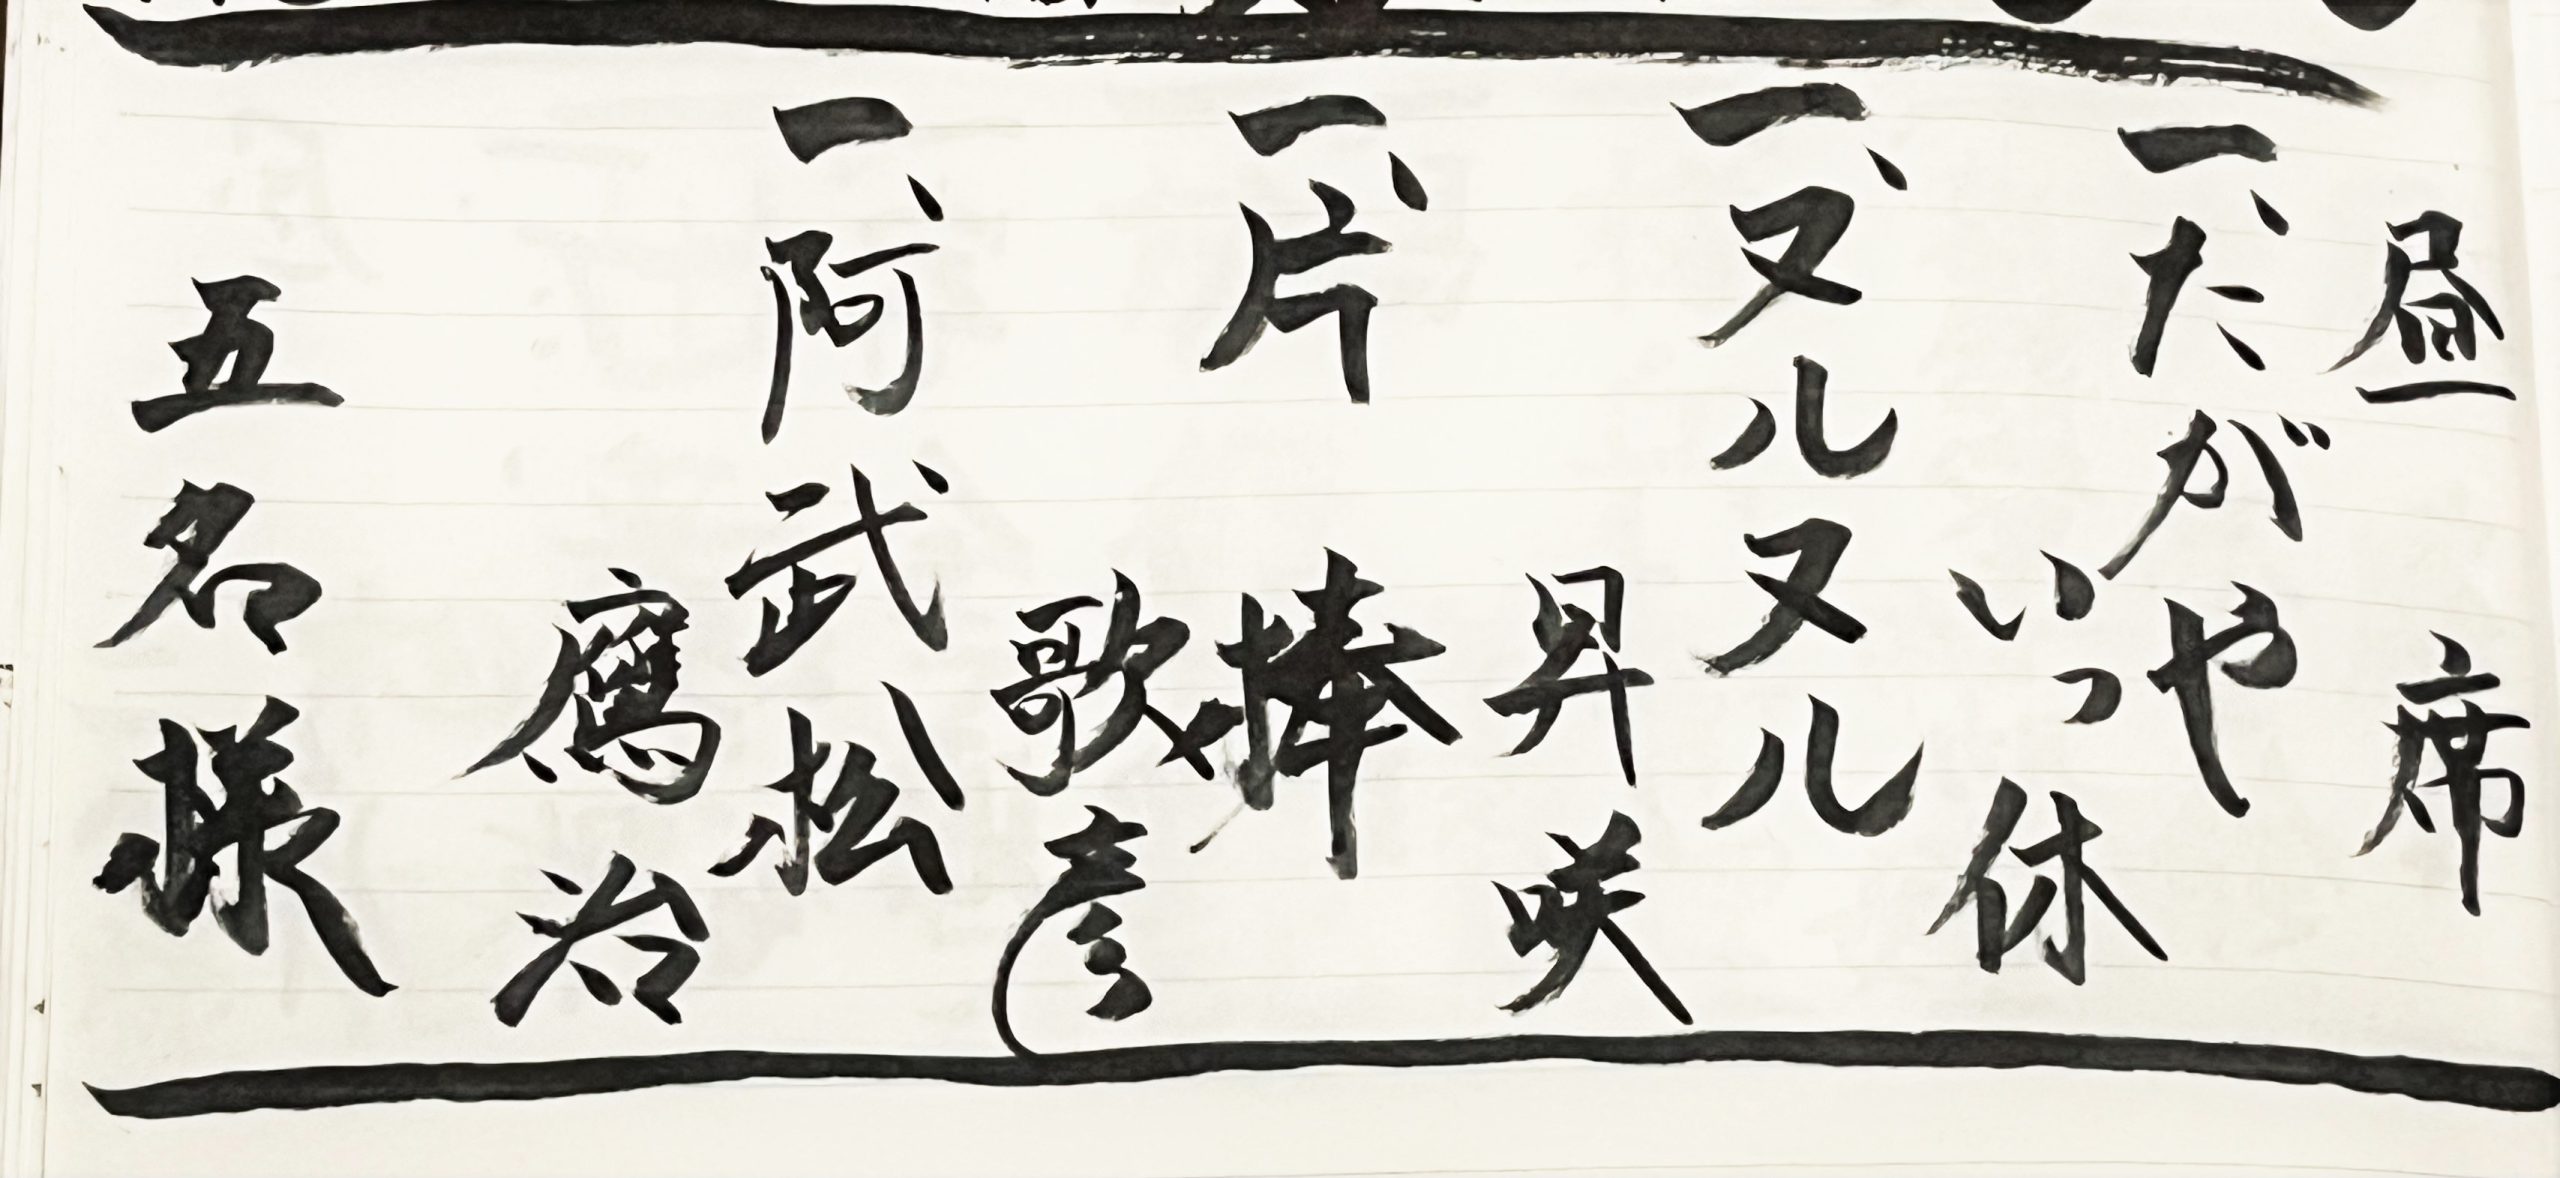 昼席
一、たがや
いっ休
一、ヌルヌル
昇咲
一、片棒
歌彦
一、阿武松
鷹治
五名様